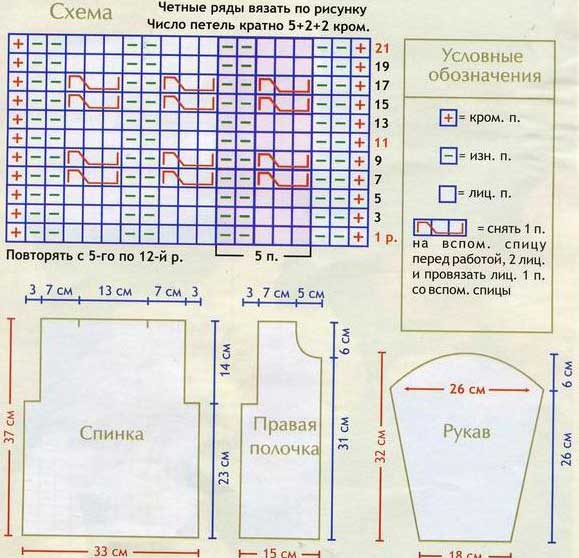 Схема
Четные ряды вязать по рисунку
Число петель кратно 5+2+2 кром.
21
19
17
15
13
11
9
7
5
3
1 р.
Повторять с 5-го по 12-й р.
5 п.
Условные
обозначения
+ = кром. п.
– = изн. п.
= лиц. п.
= снять 1 п.
на вспом. спицу
перед работой, 2 лиц.
и провязать лиц. 1 п.
со вспом. спицы
3 7 см 13 см 7 см 3
37 см
14 см
23 см
Спинка
33 см
3 7 см 5 см
6 см
31 см
Правая
полочка
15 см
32 см
26 см
6 см
26 см
Рукав
18 см